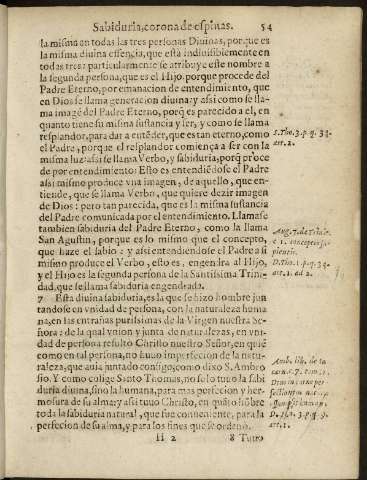 Sabiduria, corona de espinas. 54
la misma en todas las tres personas Diuinas, porque es
la misma diuina essencia, que està indiuisiblemente en
todas tres: particularmente se atribuye este nombre a
la segunda persona, que es el Hijo. porque procede del
Padre Eterno, por emanacion de entendimiẽto, que
en Dios se llama generacion diuina: y assi como se lla-
ma imagẽ del Padre Eterno, porq̃ es parecido a el, en
quanto tiene su misma sustancia y ser, y como se llama
resplandor, para dar a entẽder, que es tan eterno, como
el Padre, porque el resplandor comiença a ser con la
misma luz: assi se llama Verbo, y sabiduria, porq̃ proce
de por entendimiento: Esto es entendiẽdose el Padre
assi mismo produce vna imagen, de aquello, que en-
tiende, que se llama Verbo, que quiere dezir imagen
de Dios: pero tan parecida, que es la misma sustancia
del Padre comunicada por el entendimiento. Llamase
tambien sabiduria del Padre Eterno, como la llama
San Agustin, porque es lo mismo que el concepto,
que haze el sabio: y assi entendiendose el Padre a si
mismo produce el Verbo, esto es, engendra al Hijo,
y el Hijo es la segunda persona de la Santissima Trini-
dad, que se llama sabiduria engendrada.
7 Esta diuina sabiduria, es la que se hizo hombre jun
tandose en vnidad de persona, con la naturaleza huma
na, en las entrañas purissimas de la Virgen nuestra Se-
ñora: de la qual vnion y junta de naturalezas, en vni-
dad de persona resulto Christo nuestro Señor, en quiẽ
como en tal persona, no huuo imperfecion de la natu-
raleza, que auia juntado consigo, como dixo S. Ambro
sio. Y como colige Santo Thomas, no solo tuuo la sabi
duria diuina, sino la humana, para mas perfecion y her-
mosura de su alma: y assi tuuo Christo, en quãto hõbre
toda la sabiduria natural, que fue conueniente, para la
perfecion de su alma, y para los fines que se ordenò.
H 2 8 Tuuo
S. Tho. 1. p. q. 34.
art. 2.
Aug. 7. de Trini.
D. Tho. 1. p. q. 34.
art. 1. ad 2.
Amb. lib. de in
art. 1.